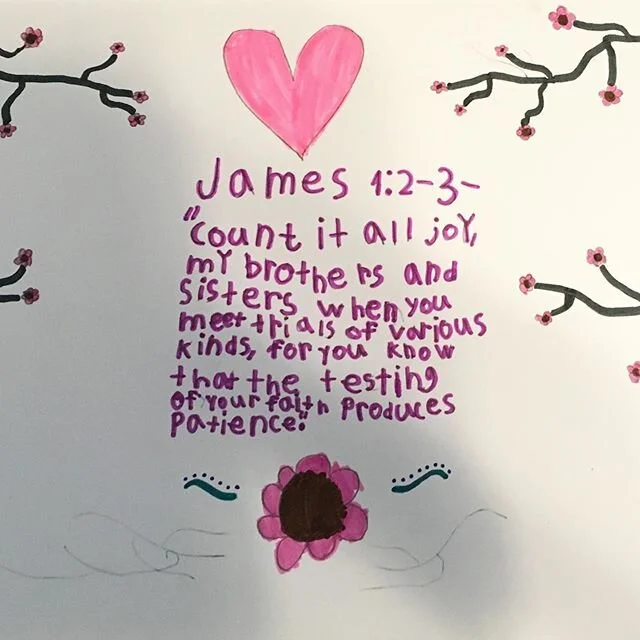 James 1:2-3-
"Count it all joy,
my brothers and
sisters, when you
meet trials of various
kinds, for you know
that the testing
of your faith produces
patience."